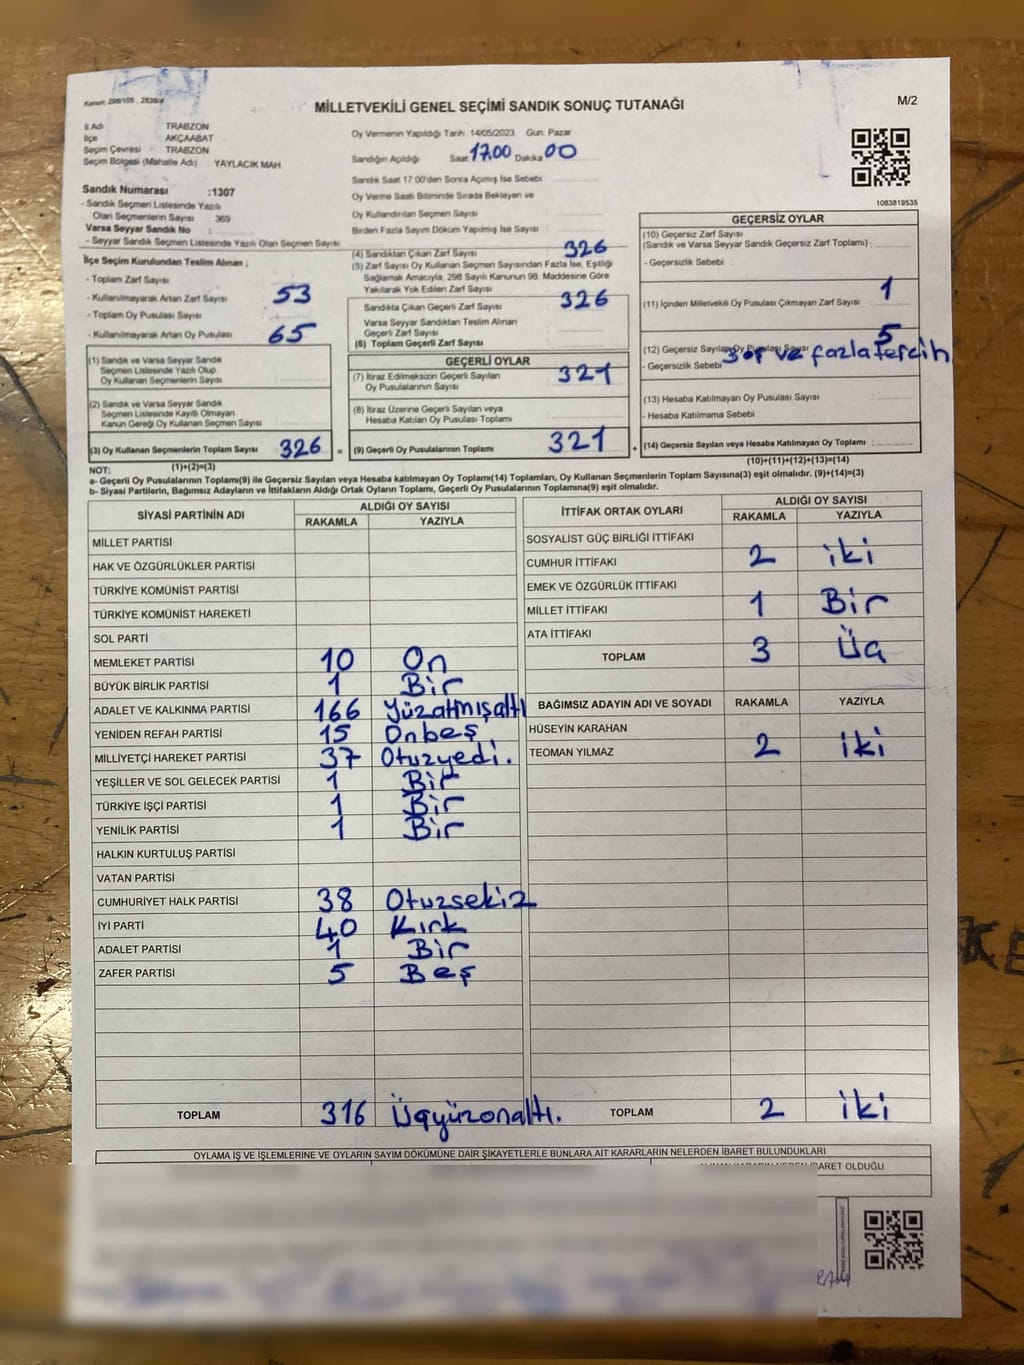 Kanun: 298/105 , 2839/4
MİLLETVEKİLİ GENEL SEÇİMİ SANDIK SONUÇ TUTANAĞI
M/2
İl Adı TRABZON
İlçe AKÇAABAT
Seçim Çevresi TRABZON
Seçim Bölgesi (Mahalle Adı) YAYLACIK MAH.
Sandık Numarası :1307
- Sandık Seçmen Listesinde Yazılı
Olan Seçmenlerin Sayısı 369
Varsa Seyyar Sandık No
- Seyyar Sandık Seçmen Listesinde Yazılı Olan Seçmen Sayısı
Oy Vermenin Yapıldığı Tarih 14/05/2023 Gün: Pazar
Sandığın Açıldığı Saat 17.00 Dakika 00
Sandık Saat 17:00'den Sonra Açımış İse Sebebi
Oy Verme Saati Bitiminde Sırada Bekleyen ve
Oy Kullandırılan Seçmen Sayısı
Birden Fazla Sayım Döküm Yapılmış İse Sayısı
1083819535
İlçe Seçim Kurulundan Teslim Alınan ;
- Toplam Zarf Sayısı
- Kullanılmayarak Artan Zarf Sayısı 53
- Toplam Oy Pusulası Sayısı
- Kullanılmayarak Artan Oy Pusulası 65
(1) Sandık ve Varsa Seyyar Sandık
Seçmen Listesinde Yazılı Olup
Oy Kullanan Seçmenlerin Sayısı
(2) Sandık ve Varsa Seyyar Sandık
Seçmen Listesinde Kayıtlı Olmayan
Kanun Gereği Oy Kullanan Seçmen Sayısı
(3) Oy Kullanan Seçmenlerin Toplam Sayısı 326
(1)+(2)=(3)
(4) Sandıktan Çıkan Zarf Sayısı 326
(5) Zarf Sayısı Oy Kullanan Seçmen Sayısından Fazla İse, Eşitliği
Sağlamak Amacıyla, 298 Sayılı Kanunun 98. Maddesine Göre
Yakılarak Yok Edilen Zarf Sayısı
Sandıkta Çıkan Geçerli Zarf Sayısı 326
Varsa Seyyar Sandıktan Teslim Alınan
Geçerli Zarf Sayısı
(6) Toplam Geçerli Zarf Sayısı
GEÇERLİ OYLAR
(7) İtiraz Edilmeksizin Geçerli Sayılan
Oy Pusulalarının Sayısı 321
(8) İtiraz Üzerine Geçerli Sayılan veya
Hesaba Katılan Oy Pusulası Toplamı
= (9) Geçerli Oy Pusulalarının Toplamı 321 +
GEÇERSİZ OYLAR
(10) Geçersiz Zarf Sayısı
(Sandık ve Varsa Seyyar Sandık Geçersiz Zarf Toplamı)
- Geçersizlik Sebebi
(11) İçinden Milletvekili Oy Pusulası Çıkmayan Zarf Sayısı 1
(12) Geçersiz Sayılan Oy Pusulası Sayısı 5
- Geçersizlik Sebebi ve fazla tercih
(13) Hesaba Katılmayan Oy Pusulası Sayısı
- Hesaba Katılmama Sebebi
(14) Geçersiz Sayılan veya Hesaba Katılmayan Oy Toplamı :
(10)+(11)+(12)+(13)=(14)
NOT:
a- Geçerli Oy Pusulalarının Toplamı(9) ile Geçersiz Sayılan veya Hesaba katılmayan Oy Toplamı(14) Toplamları, Oy Kullanan Seçmenlerin Toplam Sayısına(3) eşit olmalıdır. (9)+(14)=(3)
b- Siyasi Partilerin, Bağımsız Adayların ve İttifakların Aldığı Ortak Oyların Toplamı, Geçerli Oy Pusulalarının Toplamına(9) eşit olmalıdır.
SİYASİ PARTİNİN ADI ALDIĞI OY SAYISI
RAKAMLA YAZIYLA
MİLLET PARTİSİ
HAK VE ÖZGÜRLÜKLER PARTİSİ
TÜRKİYE KOMÜNİST PARTİSİ
TÜRKİYE KOMÜNİST HAREKETİ
SOL PARTİ
MEMLEKET PARTİSİ 10 On
BÜYÜK BİRLİK PARTİSİ 1 Bir
ADALET VE KALKINMA PARTİSİ 166 Yüzatmışaltı
YENİDEN REFAH PARTİSİ 15 Onbeş
MİLLİYETÇİ HAREKET PARTİSİ 37 Otuzyedi.
YEŞİLLER VE SOL GELECEK PARTİSİ 1 Bir
TÜRKİYE İŞÇİ PARTİSİ 1 Bir
YENİLİK PARTİSİ 1 Bir
HALKIN KURTULUŞ PARTİSİ
VATAN PARTİSİ
CUMHURİYET HALK PARTİSİ 38 Otuzsekiz
İYİ PARTİ 40 Kırk
ADALET PARTİSİ 1 Bir
ZAFER PARTİSİ 5 Beş
TOPLAM 316 Üçyüzonaltı.
İTTİFAK ORTAK OYLARI ALDIĞI OY SAYISI
RAKAMLA YAZIYLA
SOSYALİST GÜÇ BİRLİĞİ İTTİFAKI
CUMHUR İTTİFAKI 2 iki
EMEK VE ÖZGÜRLÜK İTTİFAKI
MİLLET İTTİFAKI 1 Bir
ATA İTTİFAKI
TOPLAM 3 Üç
BAĞIMSIZ ADAYIN ADI VE SOYADI RAKAMLA YAZIYLA
HÜSEYİN KARAHAN
TEOMAN YILMAZ 2 iki
TOPLAM 2 iki
OYLAMA İŞ VE İŞLEMLERİNE VE OYLARIN SAYIM DÖKÜMÜNE DAİR ŞİKAYETLERLE BUNLARA AİT KARARLARIN NELERDEN İBARET BULUNDUKLARI
İBARET OLDUĞU
KE